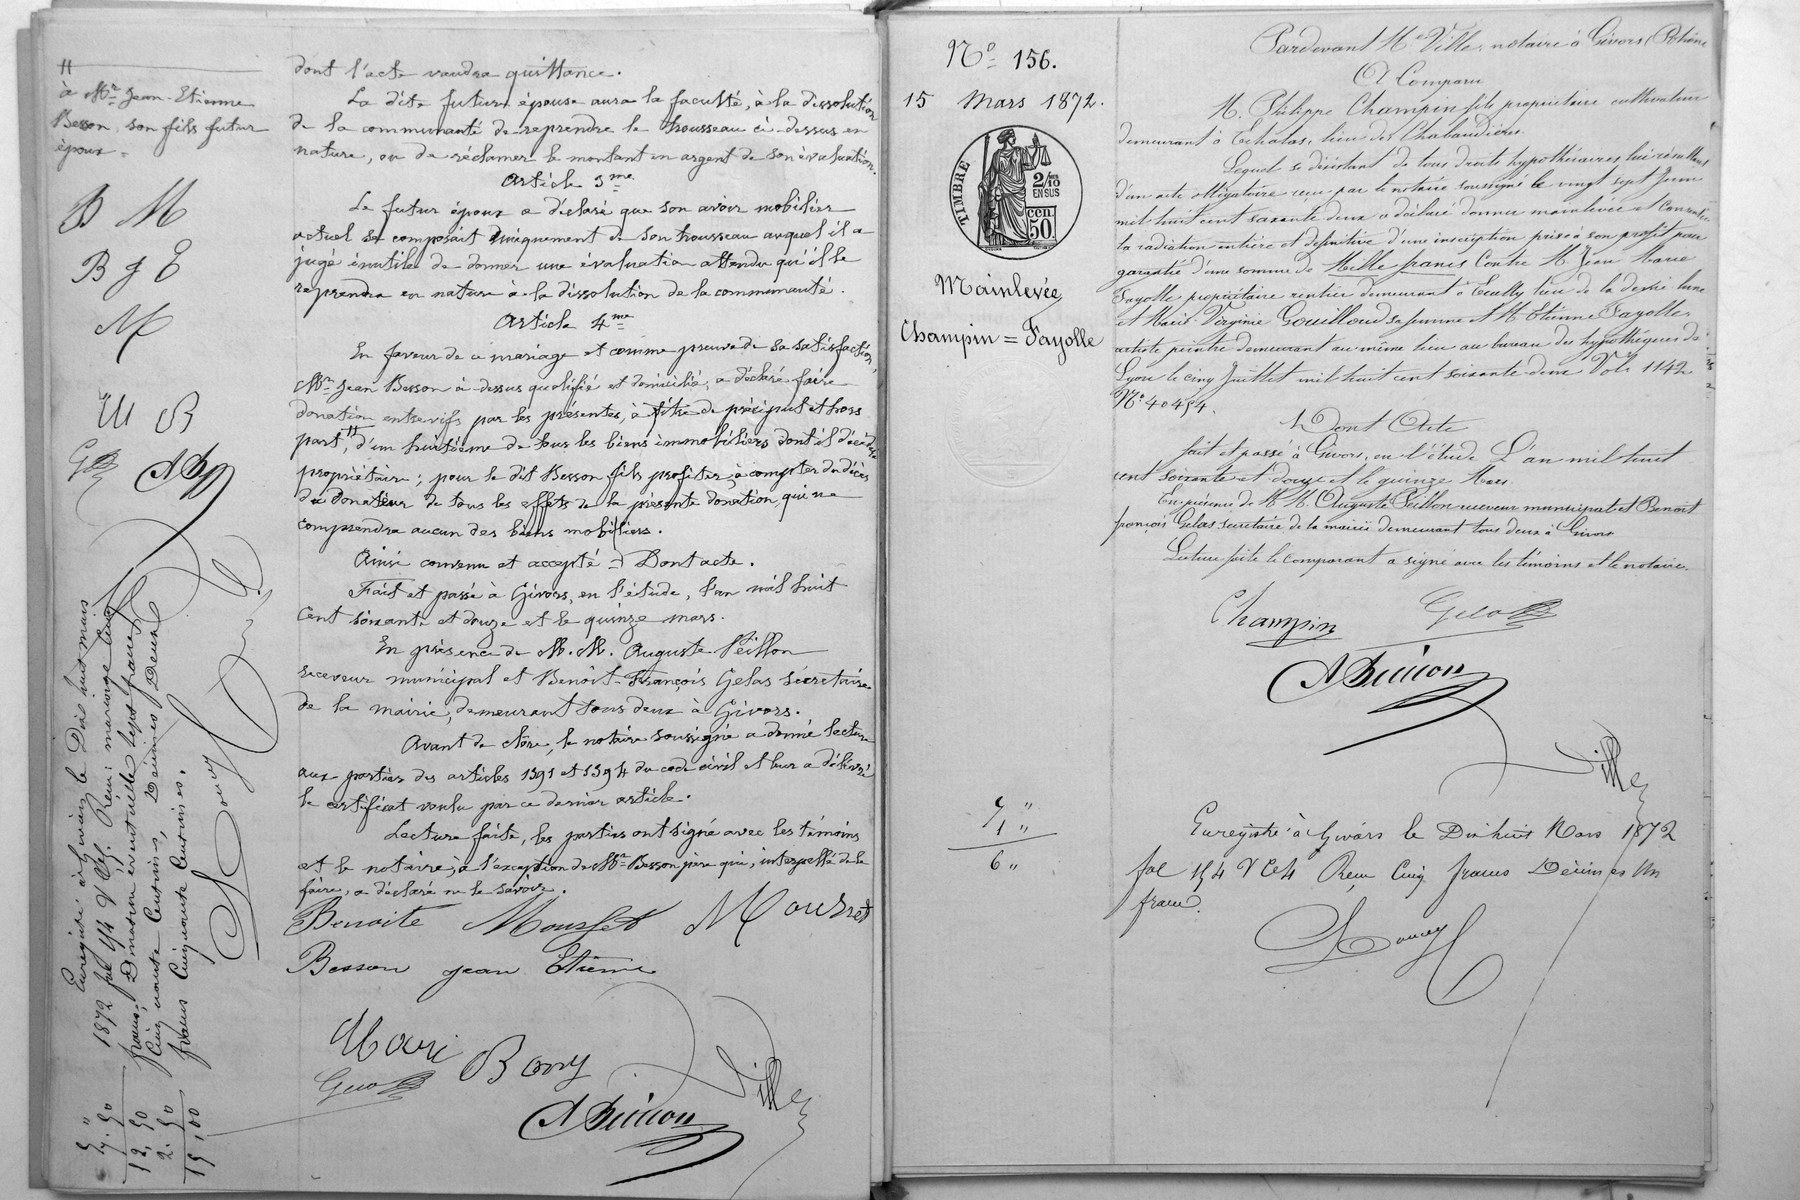 "
à Mr Jean-Etienne
Besson, son fils futur
époux =
B M
B J E
M
M B
dont l'acte vaudra quittance.
La dite future épouse aura la faculté, à la dissolution
de la communauté de reprendre le trousseau ci-dessus en
nature, ou de réclamer le montant en argent de son évaluation.
Article 3me
Le futur époux a déclaré que son avoir mobilier
actuel se composait uniquement de son trousseau auquel il a
jugé inutile de donner une évaluation attendu qu'il le
reprendra en nature à la dissolution de la communauté.
Article 4me
En faveur de ce mariage et comme preuve de sa satisfaction,
Mr Jean Besson ci-dessus qualifié et domicilié, a déclaré faire
donation entrevifs par les présentes, à titre de préciput et hors
part, " d'un huitième de tous les biens immobiliers dont il décèdera
propriétaire; pour le dit Besson fils profiter, à compter du décès
du donateur de tous les effets de la présente donation, qui ne
comprendra aucun des biens mobiliers.
Ainsi convenu et accepté = Dont acte.
Fait et passé à Givors, en l'étude, l'an mil huit
cent soixante et douze et le quinze mars.
En présence de M. M. Auguste Peillon
receveur municipal et Benoît-François Gelas secrétaire
de la mairie, demeurant tous deux à Givors.
Avant de clore, le notaire soussigné a donné lecture
aux parties des articles 1391 et 1394 du code civil et leur a délivré
le certificat voulu par ce dernier article.
Lecture faite, les parties ont signé avec les témoins
et le notaire, à l'exception de Mr Besson père qui, interpellé de le
faire, a déclaré ne le savoir.
Benoite Mousset Mousset
Besson Jean Etienne
Gelas
APeillon
Ville
Enregistré à Givors le Dix huit mars
1872 fol 154 V C4 Reçu: mariage Cinq
francs, Donation éventuelle Sept francs
Cinquante Centimes, Décimes Deux
francs Cinquante Centimes.
5 "
7.50
12.50
2.50
15,00
No 156.
15 Mars 1872.
TIMBRE
2/10
EN SUS
50 cen.
Mainlevée
Champin = Fayolle
5 "
1 "
6 "
Pardevant Me Ville, notaire à Givors (Rhône
A Comparu
M. Philippe Champin fils propriétaire cultivateur
demeurant à Echalas, lieu des Chabaudières.
Lequel se désistant de tous droits hypothécaires lui résultant
d'un acte obligatoire reçu par le notaire soussigné le vingt sept Juin
mil huit cent soixante deux a déclaré donner mainlevée et consentir
la radiation entière et définitive d'une inscription prise à son profit pour
garantie d'une somme de Mille francs Contre M. Jean Marie
Fayolle propriétaire rentier demeurant à Ecully lieu de la demi-lune
et Marie-Virginie Gouilloud sa femme et M. Etienne Fayolle
artiste peintre demeurant au même lieu au bureau des hypothèques de
Lyon le cinq Juillet mil huit cent soixante-deux Vol. 1142
No 40454.
Dont Acte
fait et passé à Givors, en l'étude L'an mil huit
cent soixante et douze et le quinze Mars
En présence de M. M. Auguste Peillon receveur municipal et Benoit
françois Gelas secretaire de la mairie demeurant tous deux à Givors
Lecture faite le comparant a signé avec les témoins et le notaire
Champin Gelas
APeillon
Ville
Enregistré à Givors le Dix huit Mars 1872
fol 154 V C4 Reçu Cinq francs Décimes Un
franc.